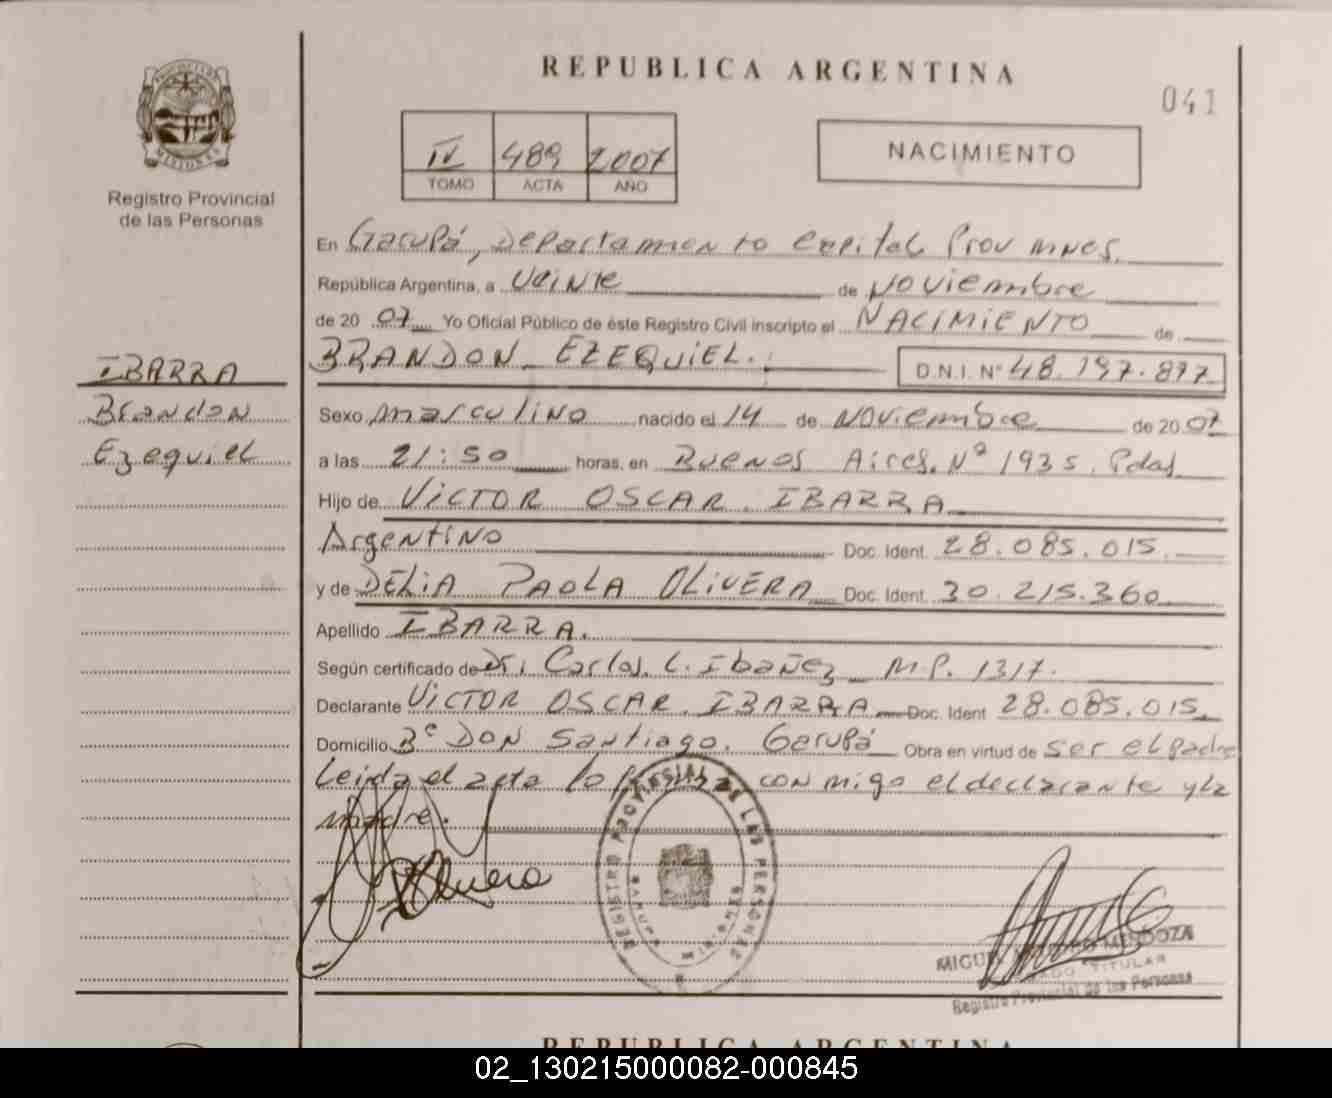 REPUBLICA ARGENTINA
041
IV 489 2007
TOMO ACTA AÑO
NACIMIENTO
PROVINCIA DE MISIONES
Registro Provincial
de las Personas
En Garupá, Departamento Capital Prov mnes.
República Argentina, a Veinte de Noviembre
de 2007 Yo Oficial Público de éste Registro Civil inscripto el NACIMIENTO de
BRANDON EZEQUIEL. D.N.I. Nº 48.197.897
IBARRA
Brandon
Ezequiel
Sexo masculino nacido el 14 de Noviembre de 2007
a las 21:50 horas, en Buenos Aires. Nº 1935. Pdas
Hijo de VICTOR OSCAR IBARRA
Argentino Doc. Ident. 28.085.015.
y de DELIA PAOLA OLIVERA Doc. Ident. 30.215.360
Apellido IBARRA.
Según certificado de Dr. Carlos. L. Ibañez M.P. 1317.
Declarante VICTOR OSCAR IBARRA Doc. Ident 28.085.015
Domicilio Bº DON Santiago. Garupá Obra en virtud de ser el padre
Leida el acta la firma con migo el declarante y la
madre.
REGISTRO PROVINCIAL DE LAS PERSONAS
MENDOZA
TITULAR
Registro Provincial de las Personas
REPUBLICA ARGENTINA
02_130215000082-000845